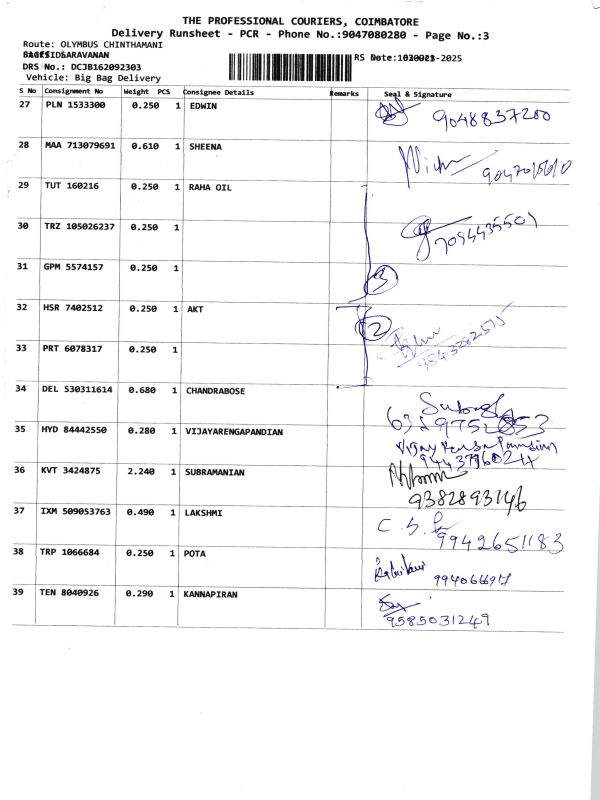 THE PROFESSIONAL COURIERS, COIMBATORE
Delivery Runsheet - PCR - Phone No.:9047080280 - Page No.:3
Route: OLYMBUS CHINTHAMANI
SARAVANAN
RS -2025
DRS No.: DCJB162092303
Vehicle: Big Bag Delivery
S No Consignment No Weight PCS Consignee Details Remarks Seal & Signature
27 PLN 1533300 0.250 1 EDWIN 9048837200
28 MAA 713079691 0.610 1 SHEENA
29 TUT 160216 0.250 1 RAHA OIL
30 TRZ 105026237 0.250 1 7094435501
31 GPM 5574157 0.250 1 3
32 HSR 7402512 0.250 1 AKT 2
33 PRT 6078317 0.250 1
34 DEL 530311614 0.680 1 CHANDRABOSE
35 HYD 84442550 0.280 1 VIJAYARENGAPANDIAN
36 KVT 3424875 2.240 1 SUBRAMANIAN 9382893146
37 IXM 509053763 0.490 1 LAKSHMI 9942651183
38 TRP 1066684 0.250 1 POTA
39 TEN 8040926 0.290 1 KANNAPIRAN 9585031249